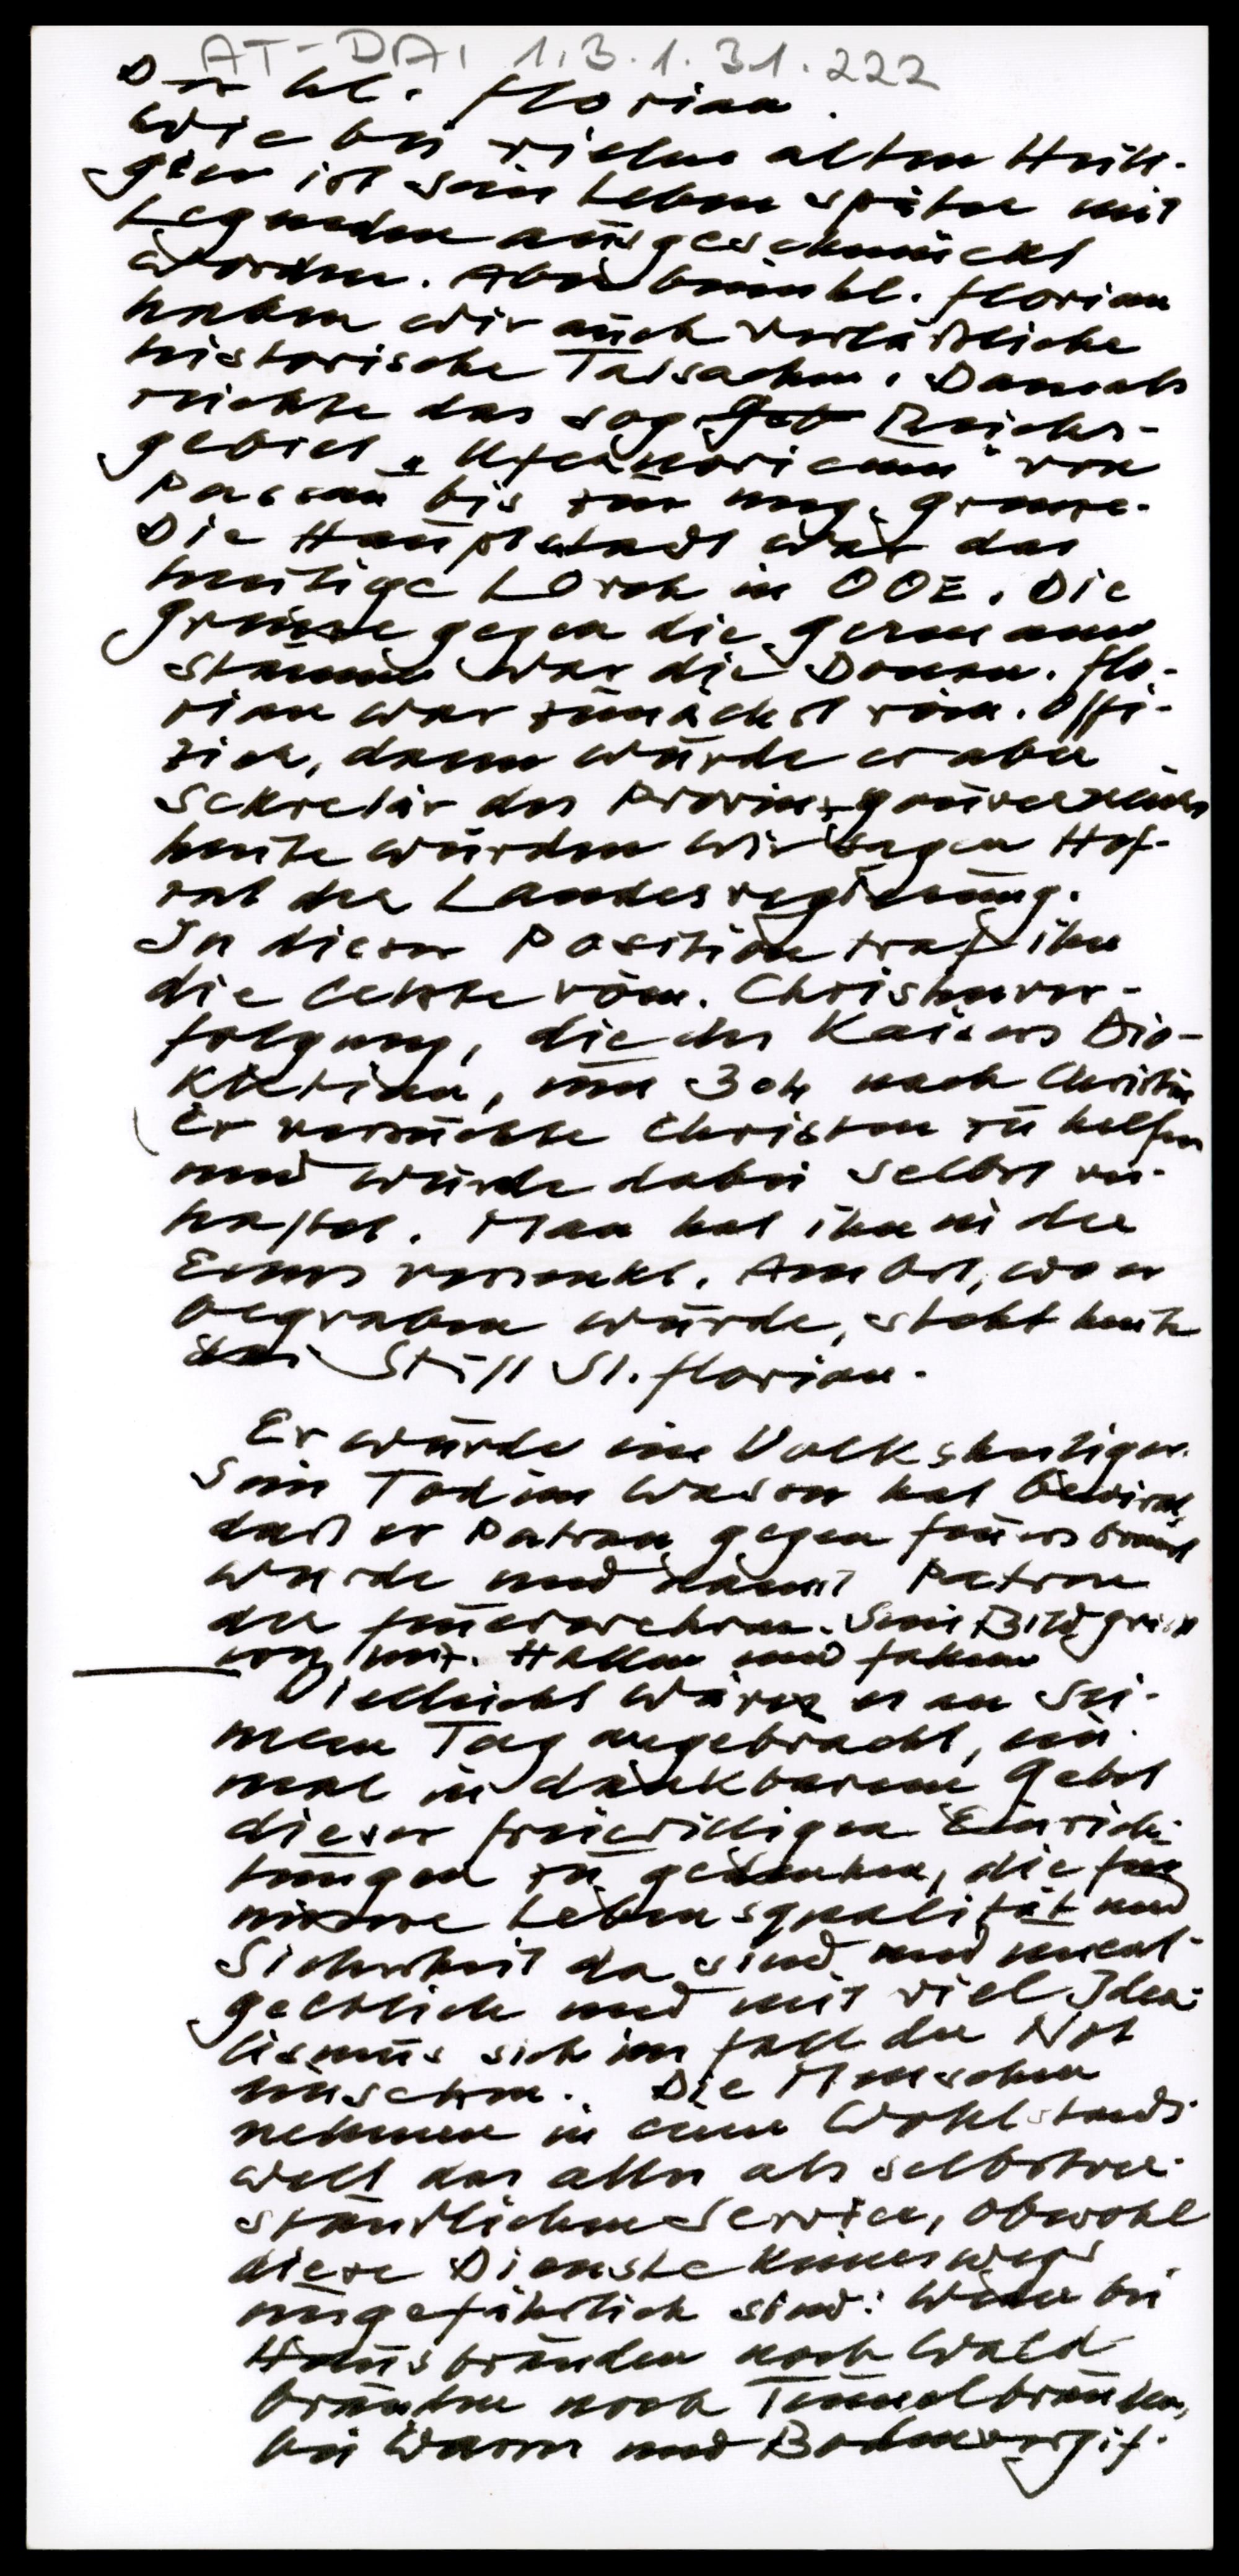 AT-DAI 1.3.1.31.222
Der hl. Florian.
Wie bei vielen alten Heili-
gen ist sein Leben später mit
Legenden ausgeschmückt
worden. Aber beim hl. Florian
haben wir auch verläßliche
historische Tatsachen. Damals
reichte das sog. Reichs-
gebiet "Ufernoricum" von
Passau bis zur ung. Grenze.
Die Hauptstadt war das
heutige Lorch in OOE. Die
Grenze gegen die German
stämme war die Donau. Flo-
rian war zunächst röm. Offi-
zier, dann wurde er aber
Sekretär des Provinzgouverneurs
heute würden wir sagen Hof-
rat der Landesregierung.
In dieser Position traf ihn
die letzte röm. Christenver-
folgung, die des Kaisers Dio-
kletian, um 304 nach Christus
Er versuchte Christen zu helfen
und wurde dabei selbst ver-
haftet. Man hat ihn in der
Enns versenkt. Am Ort, wo er
begraben wurde, steht heute
das Stift St. Florian.
Er wurde ein Volksheiliger.
Sein Tod im Wasser hat bewirkt,
daß er Patron gegen Feuersbrunst
wurde und damit Patron
der Feuerwehren. Sein Bild grüßt
von Hallen und Fahnen
Vielleicht wäre es an sei-
nem Tag angebracht, ein-
mal in dankbarem Gebet
dieser freiwilligen Einrich-
tungen zu gedenken, die für
unsere Lebensqualität und
Sicherheit da sind und unent-
geltlich und mit viel Idea-
lismus sich im Fall der Not
einsetzen. Die Menschen
nehmen in einer Wohlstands-
welt das alles als selbstver-
ständlichen Service, obwohl
diese Dienste keineswegs
ungefährlich sind: Weder bei
Hausbränden noch Wald
bränden noch Tunnelbränden,
bei Wasser und Bodenvergif-